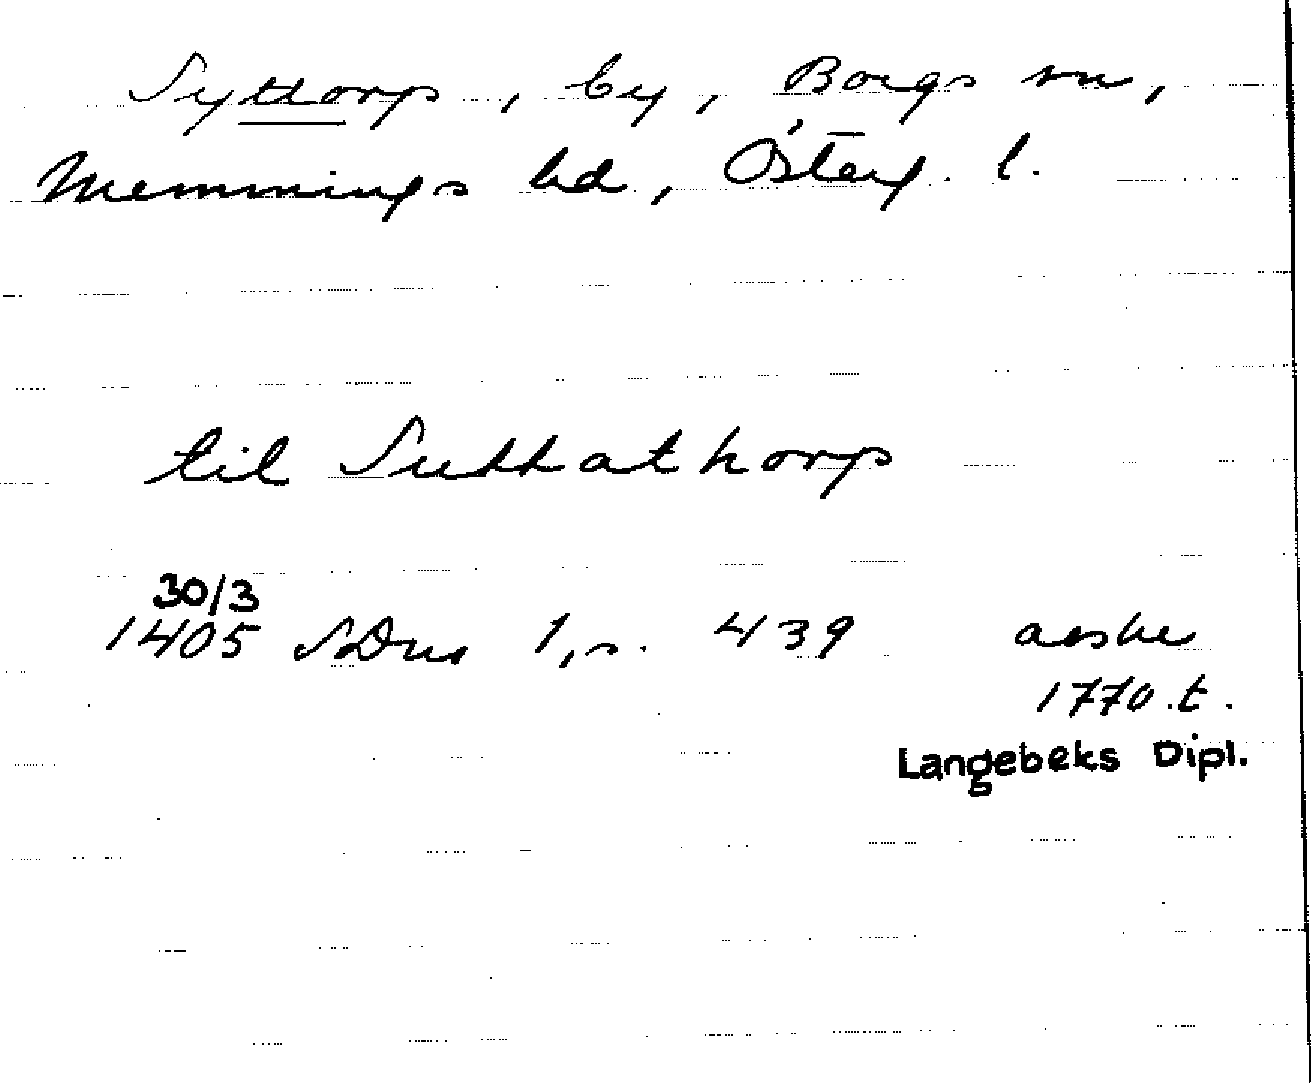 Syttorp, by, Borgs sn,
Memmings hd, Österg. l.
til Suttathorp
30/3
1405 SDns 1, s. 439 avskr
1770.t.
Langebeks Dipl.